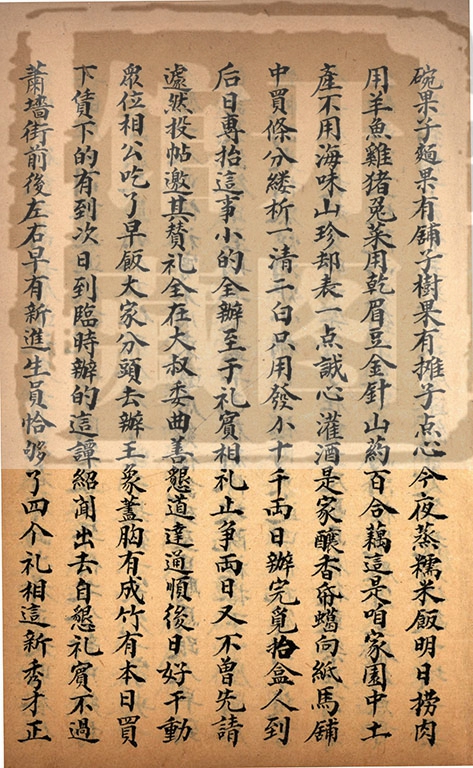 碗菓子麵果有鋪子樹果有摊子点心今夜蒸糯米飯明日捞肉
用羊魚雞猪兎菜用乾眉豆金針山葯百合藕這是咱家園中土
產不用海味山珍却表一点誠心灌酒是家釀香帋蠟向紙馬鋪
中買條分縷析一清二白只用發小十千両日辦完覓抬盒人到
后日專抬這事小的全辦至于礼賓相礼止爭両日又不曾先請
遽然投帖邀其贊礼全在大叔委曲善懇道達通順後日好干動
眾位相公吃了早飯大家分頭去辦王象藎胸有成竹有本日買
下賃下的有到次日到臨時辦的這譚紹聞出去自懇礼賓不過
蕭墻街前後左右早有新進生員恰够了四个礼相這新秀才正